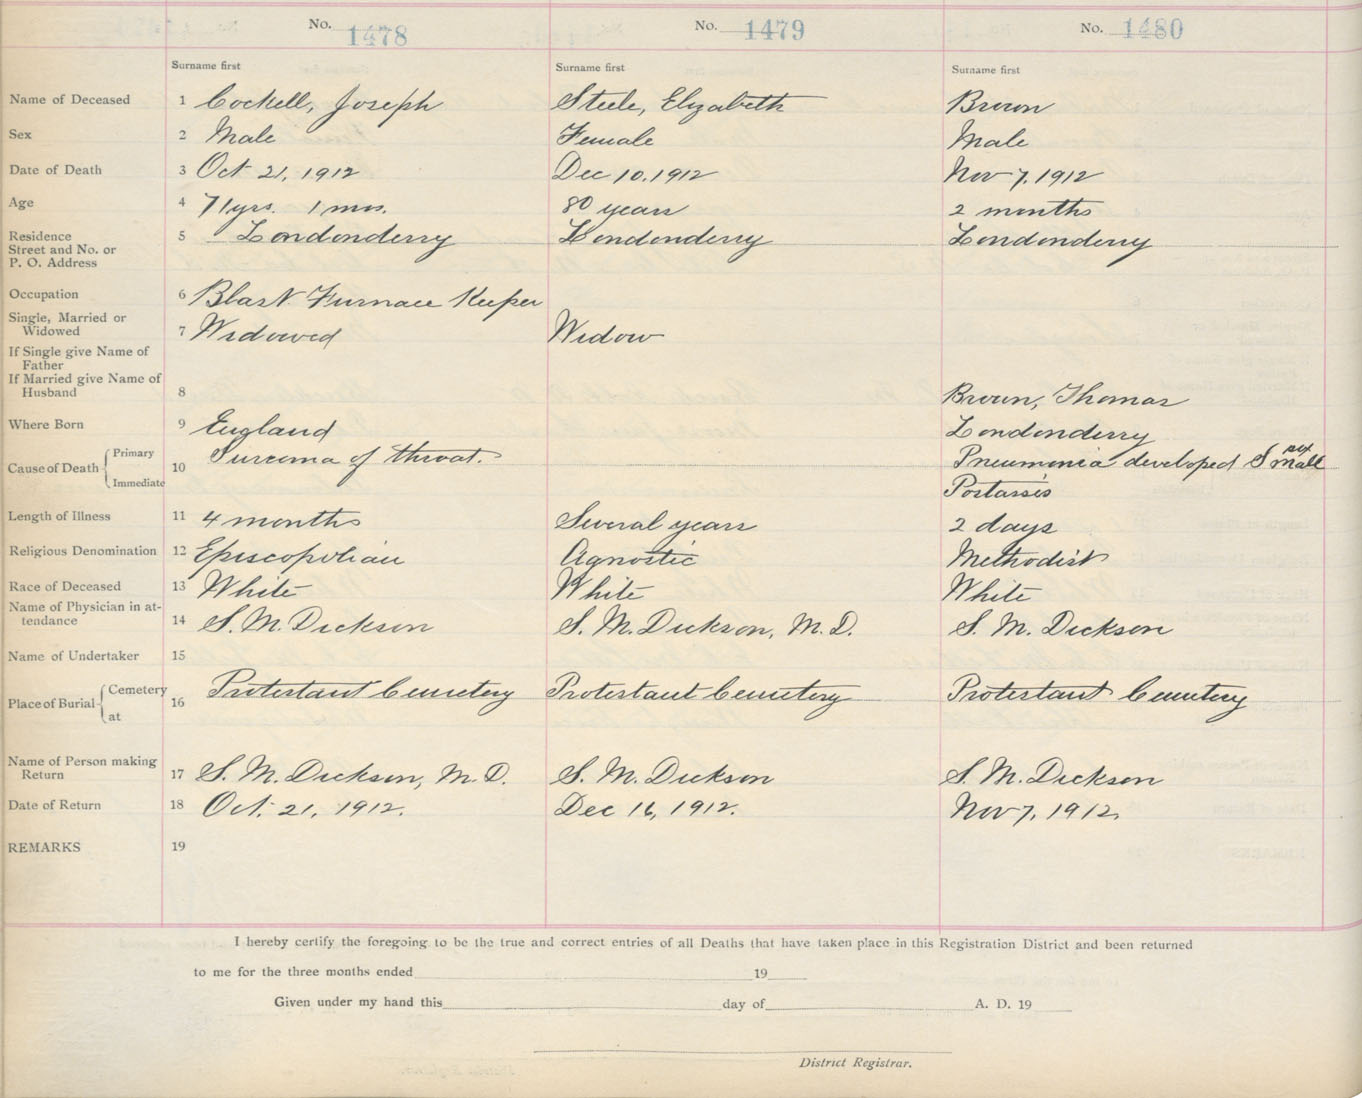 No. 1478 No. 1479 No. 1480
Surname first Surname first Surname first
Name of Deceased 1 Cockell, Joseph Steele, Elizabeth Brown
Sex 2 Male Female Male
Date of Death 3 Oct 21, 1912 Dec 10, 1912 Nov 7, 1912
Age 4 71 yrs. 1 mos. 80 years 2 months
Residence 5 Londonderry Londonderry Londonderry
Street and No. or
P. O. Address
Occupation 6 Blast Furnace Keeper
Single, Married or
Widowed 7 Widowed Widow
If Single give Name of
Father
If Married give Name of
Husband 8 Brown, Thomas
Where Born 9 England Londonderry
Cause of Death Primary 10 of throat. Pneumonia developed Small pox
Immediate
Length of Illness 11 4 months Several years 2 days
Religious Denomination 12 Episcopolian Agnostic Methodist
Race of Deceased 13 White White White
Name of Physician in at-
tendance 14 S. M. Dickson S. M. Dickson, M. D. S. M. Dickson
Name of Undertaker 15
Place of Burial Cemetery 16 Protestant Cemetery Protestant Cemetery Protestant Cemetery
at
Name of Person making
Return 17 S. M. Dickson, M. D. S. M. Dickson S. M. Dickson
Date of Return 18 Oct. 21, 1912. Dec 16, 1912. Nov 7, 1912.
REMARKS 19
I hereby certify the foregoing to be the true and correct entries of all Deaths that have taken place in this Registration District and been returned
to me for the three months ended 19
Given under my hand this day of A. D. 19
District Registrar.